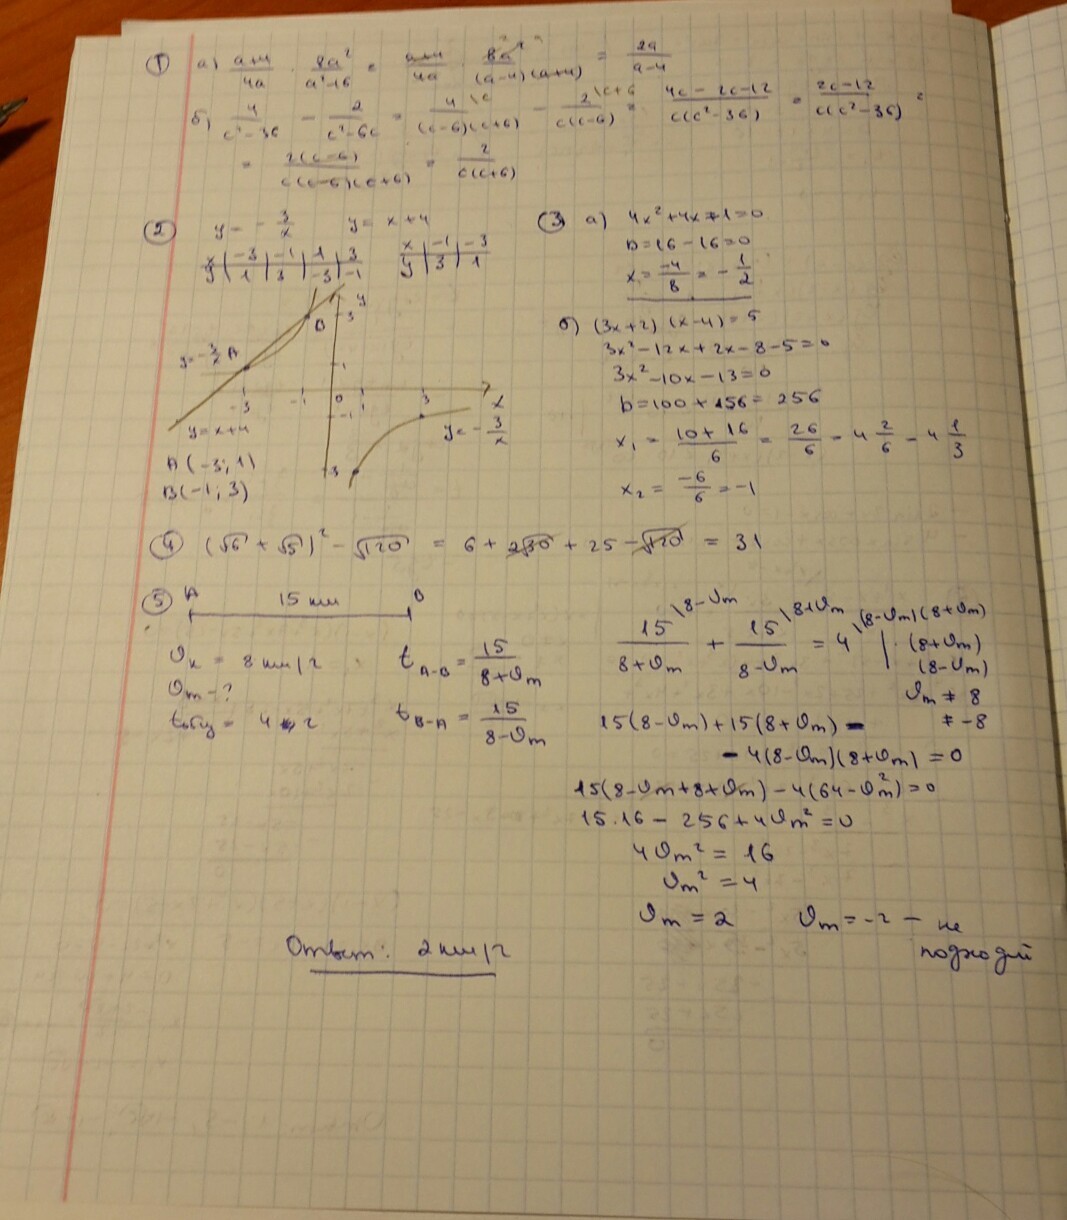 ① а) (a+4)/(4a) · (8a²)/(a²-16) = (a+4)/(4a) · (8a²)/((a-4)(a+4)) = 2a/(a-4)
б) 4/(c²-36) - 2/(c²-6c) = 4\c/((c-6)(c+6)) - 2\c+6/(c(c-6)) = (4c-2c-12)/(c(c²-36)) = (2c-12)/(c(c²-36)) =
= 2(c-6)/(c(c-6)(c+6)) = 2/(c(c+6))
② y = -3/x y = x+4
x | -3 | -1 | 1 | 3
y | 1 | 3 | -3 | -1
x | -1 | -3
y | 3 | 1
y
3
B
y=-3/x A
1
-3 -1 0 1 3 x
-1
y=x+4
y=-3/x
3
A(-3; 1)
B(-1; 3)
③ а) 4x²+4x+1=0
D=16-16=0
x = -4/8 = -1/2
б) (3x+2)(x-4)=5
3x²-12x+2x-8-5=0
3x²-10x-13=0
D=100+156=256
x₁ = (10+16)/6 = 26/6 = 4 2/6 = 4 1/3
x₂ = -6/6 = -1
④ (√6+√5)² - √120 = 6+2√30+25-√120 = 31
⑤ A 15 км B
υк = 8 км/г
υm - ?
tобщ = 4 г
tA-B = 15/(8+υm)
tB-A = 15/(8-υm)
15\8-υm/(8+υm) + 15\8+υm/(8-υm) = 4\(8-υm)(8+υm) | · (8+υm)
(8-υm)
υm ≠ 8
≠ -8
15(8-υm)+15(8+υm) -
- 4(8-υm)(8+υm) = 0
15(8-υm+8+υm) - 4(64-υm²)=0
15·16 - 256+4υm²=0
4υm² = 16
υm² = 4
υm = 2 υm = -2 - не
подходит
Ответ: 2 км/г